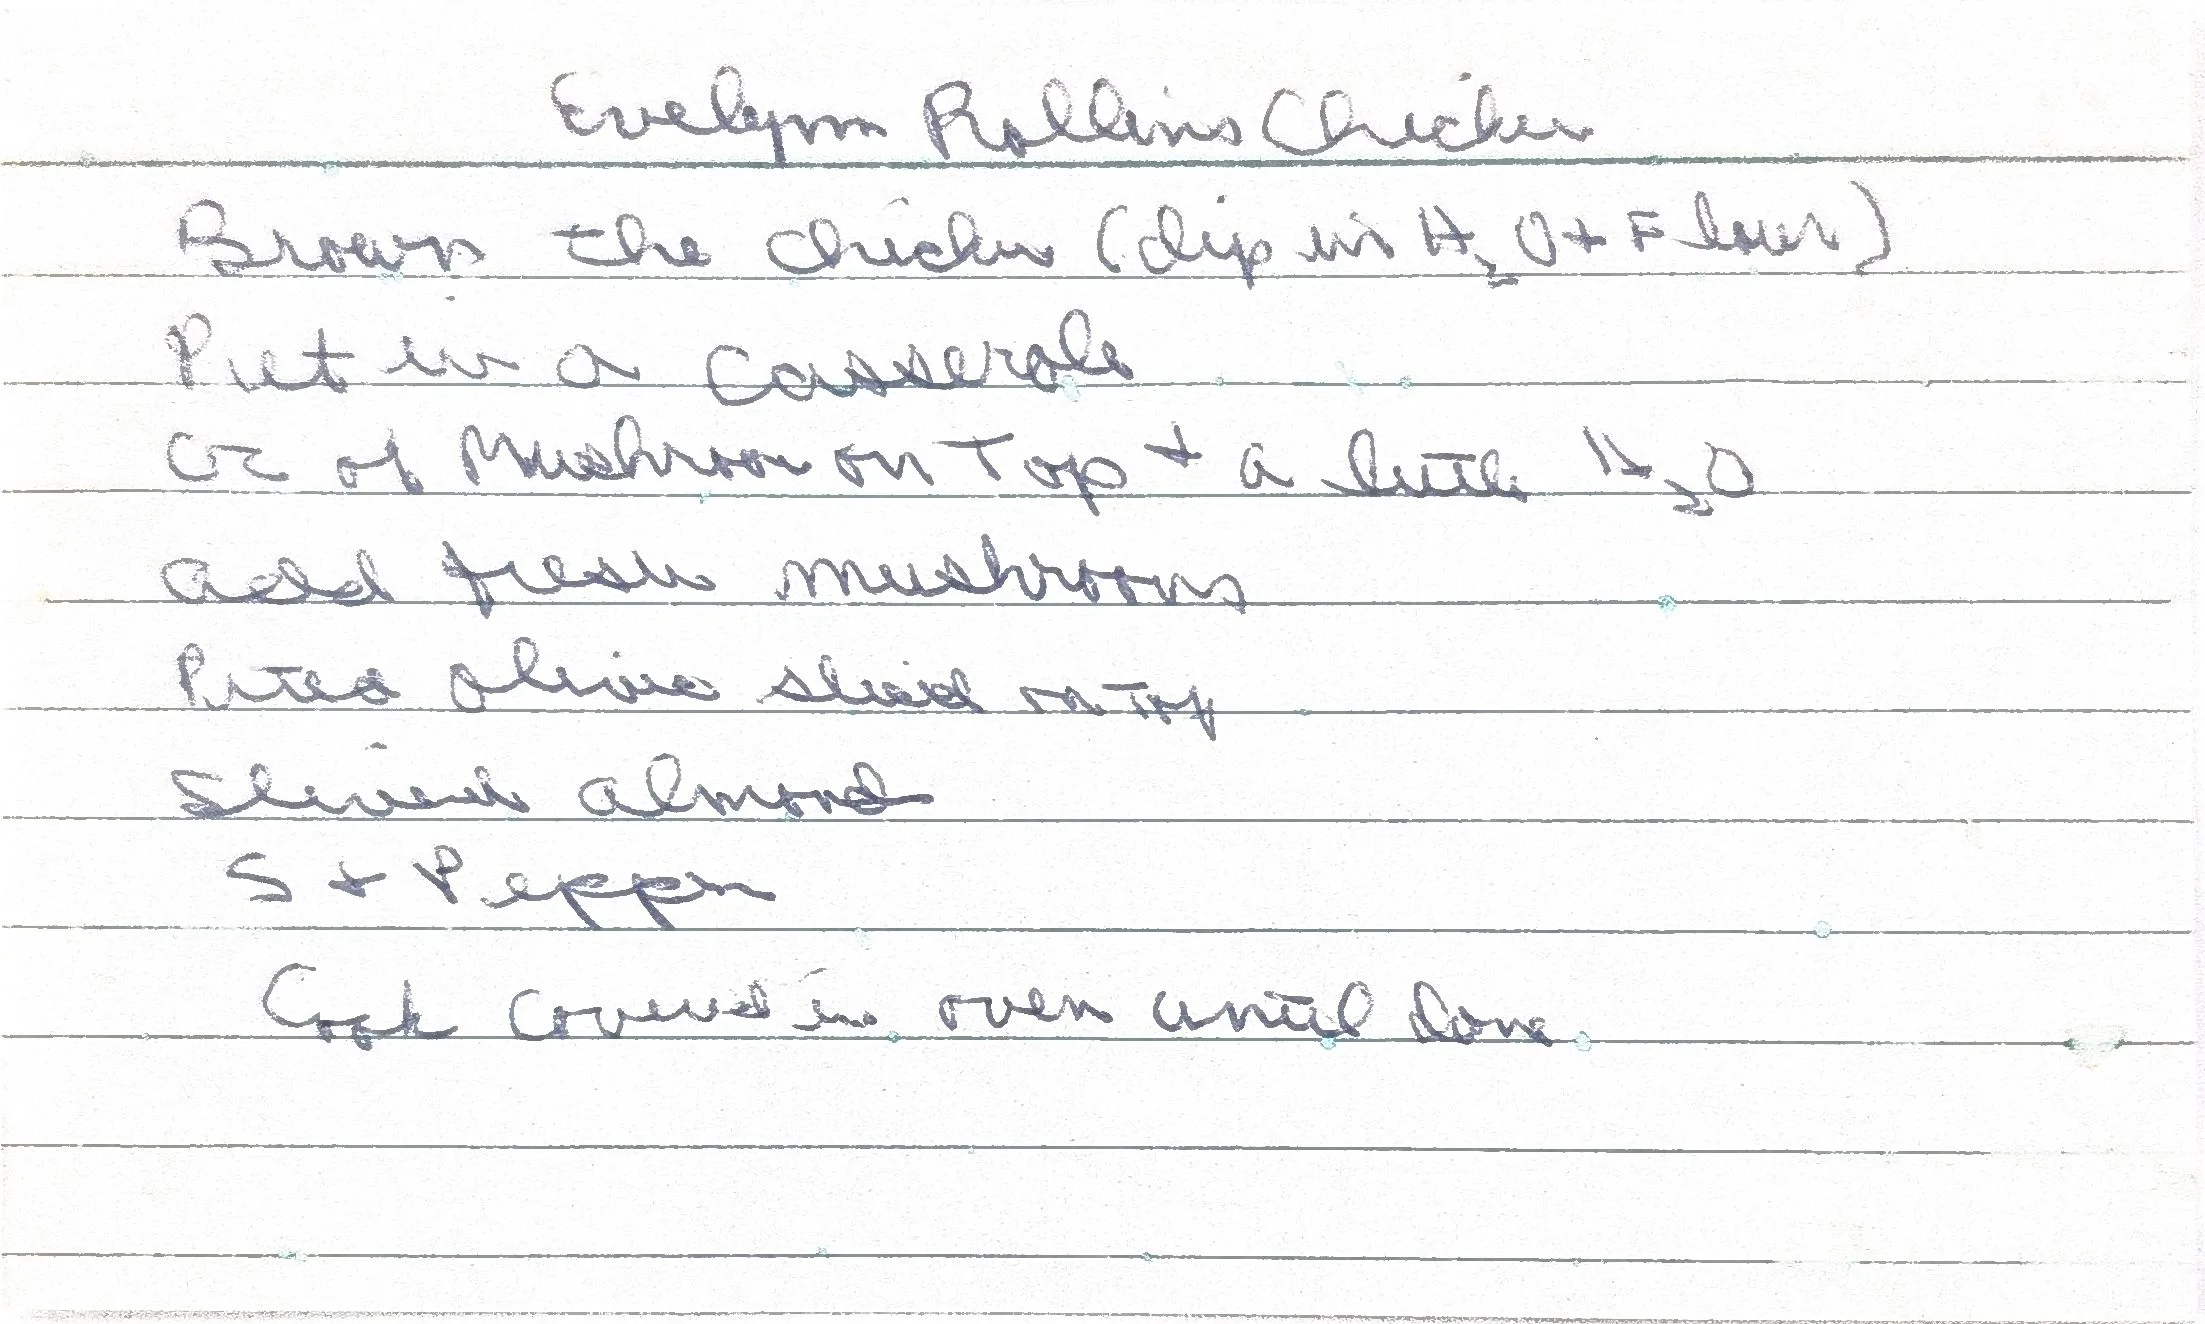 Evelynn Rollins Chicken
Brown the chicken (dip in H2O + Flour)
Put in a casserole
of Mushroom on Top + a little H2O
add fresh mushrooms
Pitted olive sliced on Top
Slivered almond
S + Pepper
Cook covered in oven until done